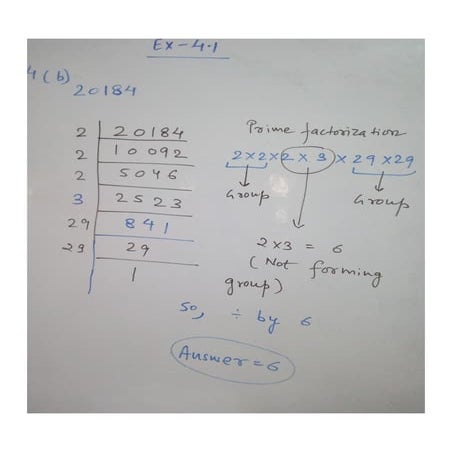 Ex-4.1
4(b)
20184
2 | 20184
2 | 10092
2 | 5046
3 | 2523
29 | 841
29 | 29
1
Prime factorization
2×2×2×3×29×29
Group Group
2×3 = 6
(Not forming
group)
So, ÷ by 6
Answer=6